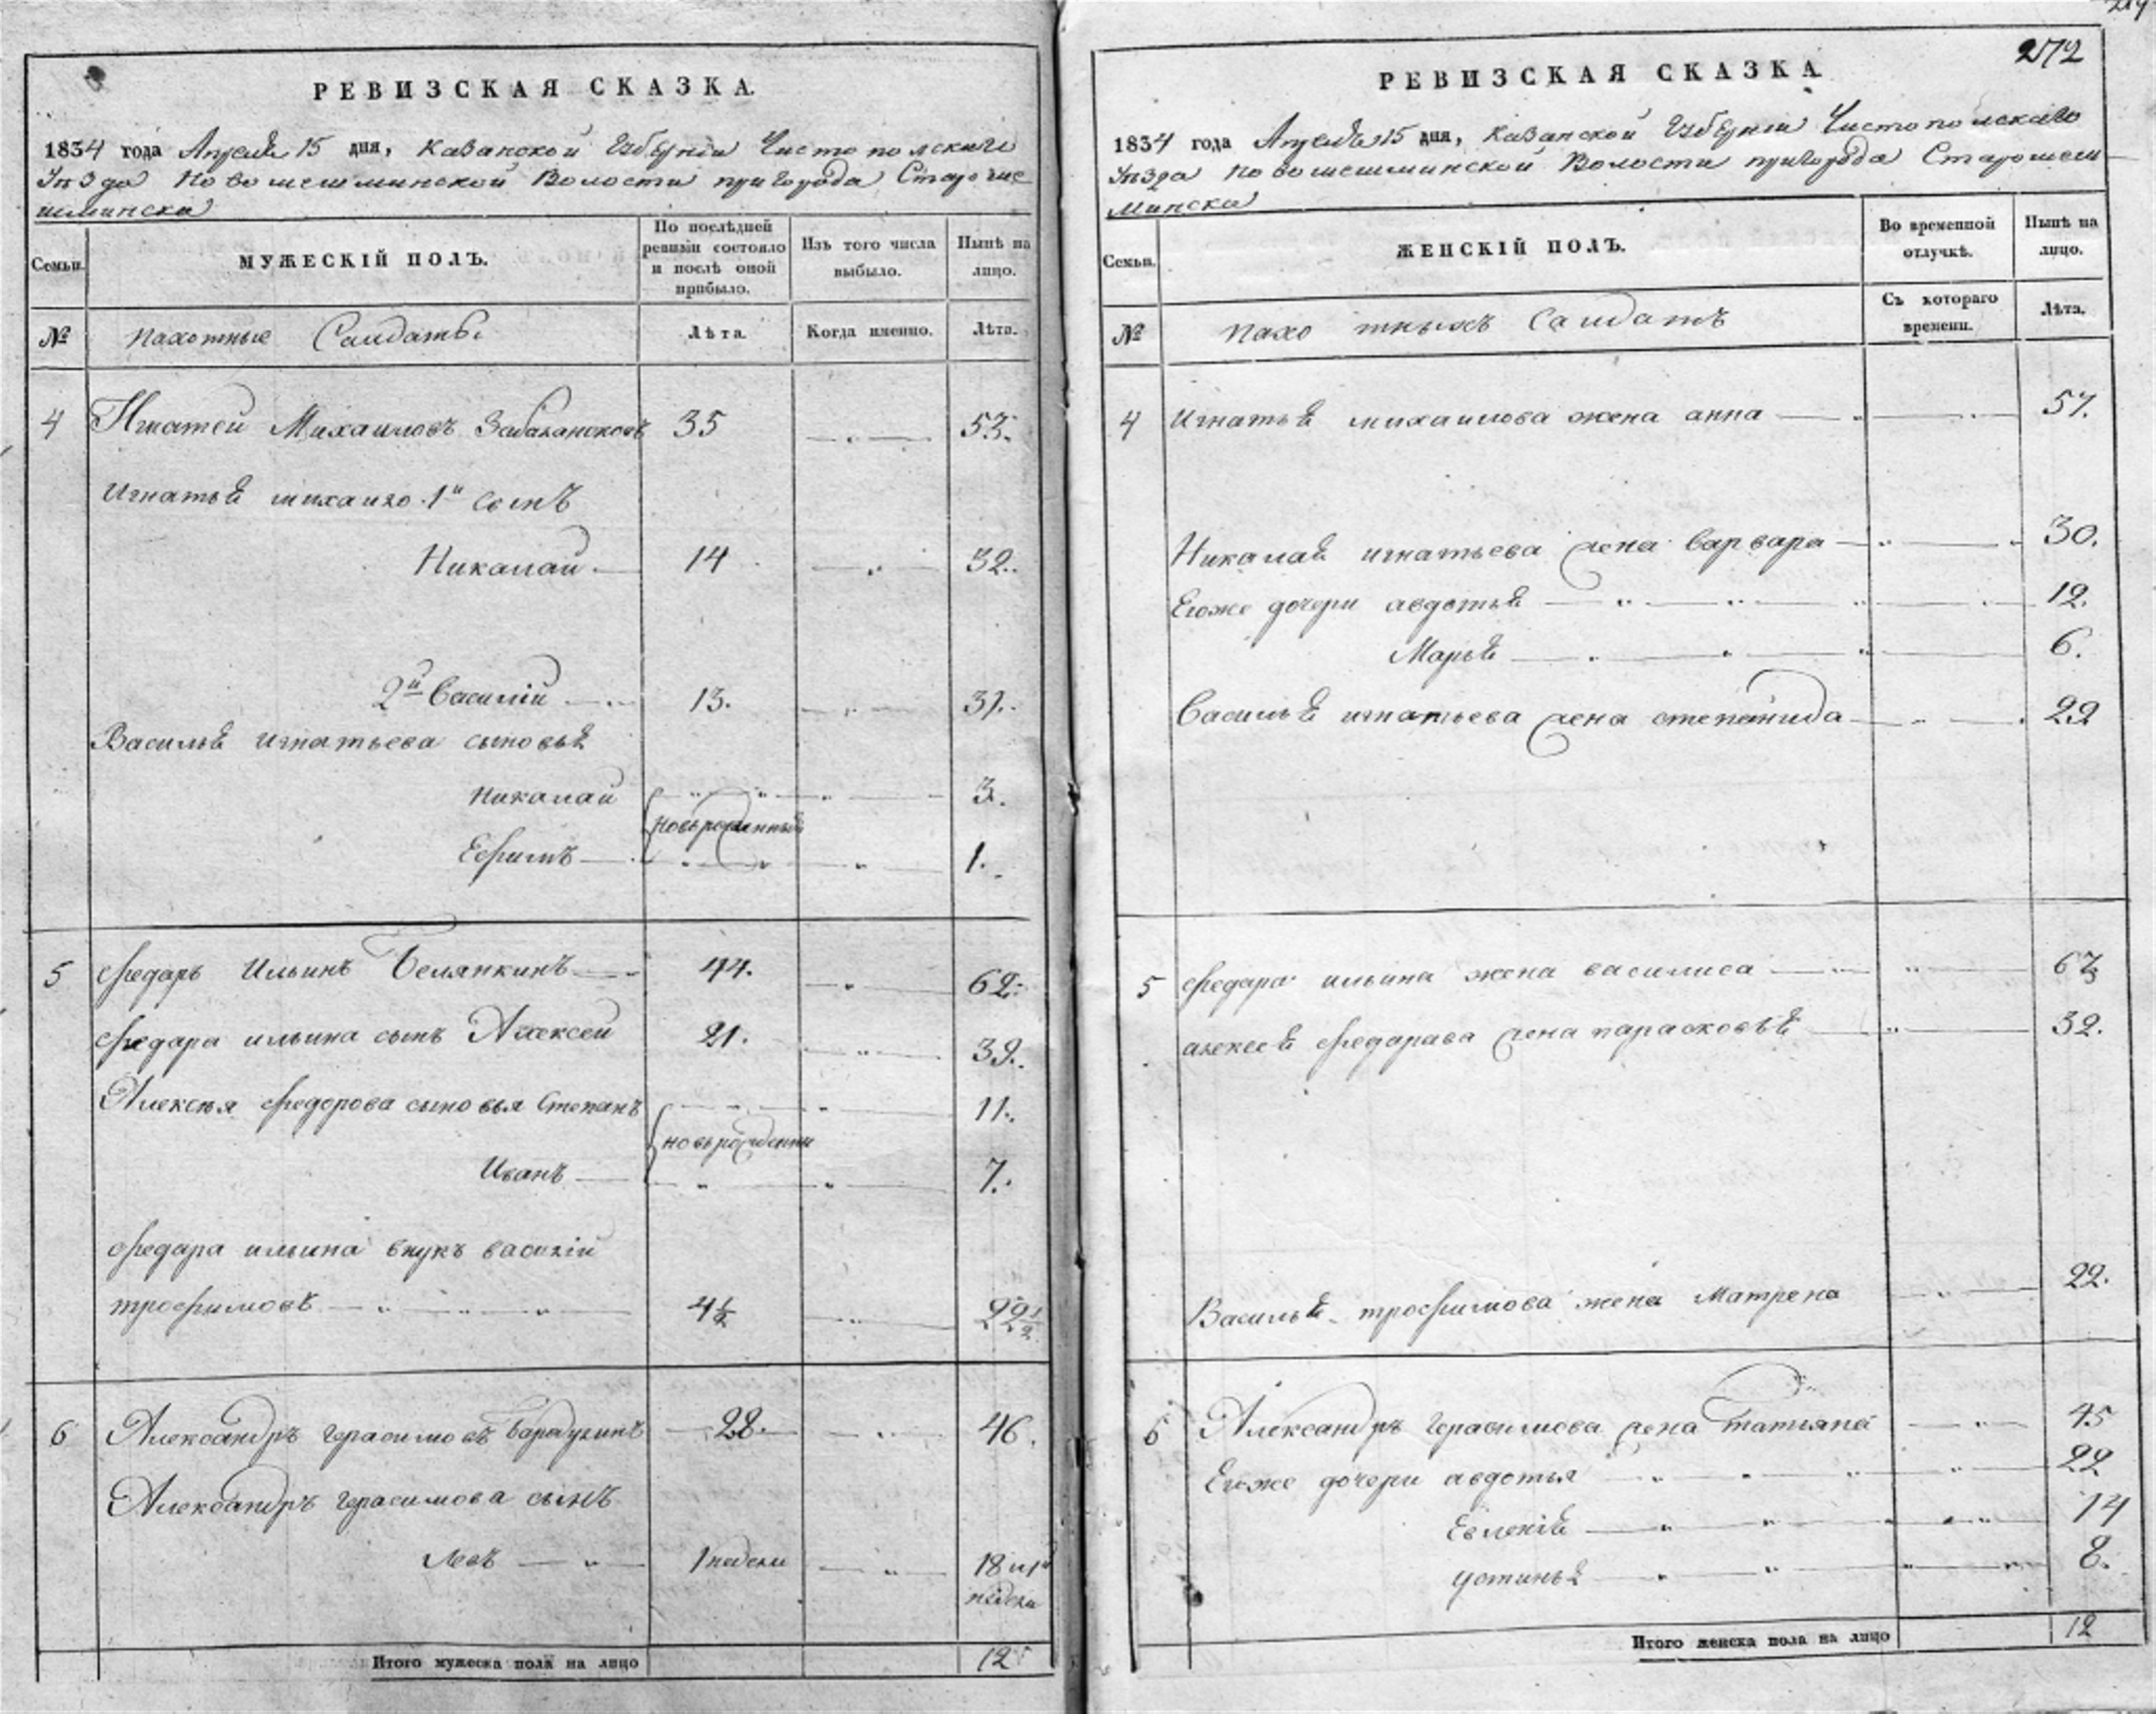 РЕВИЗСКАЯ СКАЗКА.
1834 года Апреля 15 дня, Казанской Губернии Чистополскаго
Уѣзда Новошешминской Волости пригорода Староше
шминска
Семьи.
МУЖЕСКІЙ ПОЛЪ.
По послѣдней ревизіи состояло и послѣ оной прибыло.
Изъ того числа выбыло.
Нынѣ на лицо.
№
пахотные Салдаты.
Лѣта.
Когда именно.
Лѣта.
4 Игнатей Михаиловъ 35 53.
Игнатьѣ михаило 1й сынъ
Никалай 14 32.
2й Василій 13. 31.
Васильѣ игнатьева сыновьѣ
Никалай 3.
новьрожденныѣ
Ефимъ 1.
5 Федаръ Ильинъ Белянкинъ 44. 62.
Федара ильина сынъ Алексей 21. 39.
Алексея Федорова сыновья Степанъ 11.
новьрожденны
Иванъ 7.
Федара ильина внукъ василій
трофимовъ 4½ 22½
6 Александръ герасимовъ 28. 46.
Александръ герасимова сынъ
Левъ 1 недели 18 и 1
недели
Итого мужеска пола на лицо 12
272
РЕВИЗСКАЯ СКАЗКА
1834 года Апреля 15 дня, Казанской Губернии Чистополскаго
Уѣзда Новошешминской Волости пригорода Старошеш
минска
Семьи.
ЖЕНСКІЙ ПОЛЪ.
Во временной отлучкѣ.
Нынѣ на лицо.
№
пахотныхъ Салдатъ
Съ котораго времени.
Лѣта.
4 Игнатьѣ михаилова жена анна 57.
Никалаѣ игнатьева жена варвара 30.
Егоже дочери авдотьѣ 12.
Марьѣ 6.
Васильѣ игнатьева жена степанида 29
5 Федара ильина жена василиса 63
алексеѣ Федарава жена парасковьѣ 32.
Васильѣ трофимова жена Матрена 22.
6 Александръ герасимова жена татьяна 45
Егоже дочери авдотья 22
Евгеніѣ 14
устиньѣ 8.
Итого женска пола на лицо 12